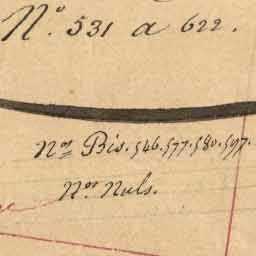 N.º 531 a 622.
N.os Bis. 546. 577. 580. 597.
N.os Nuls.